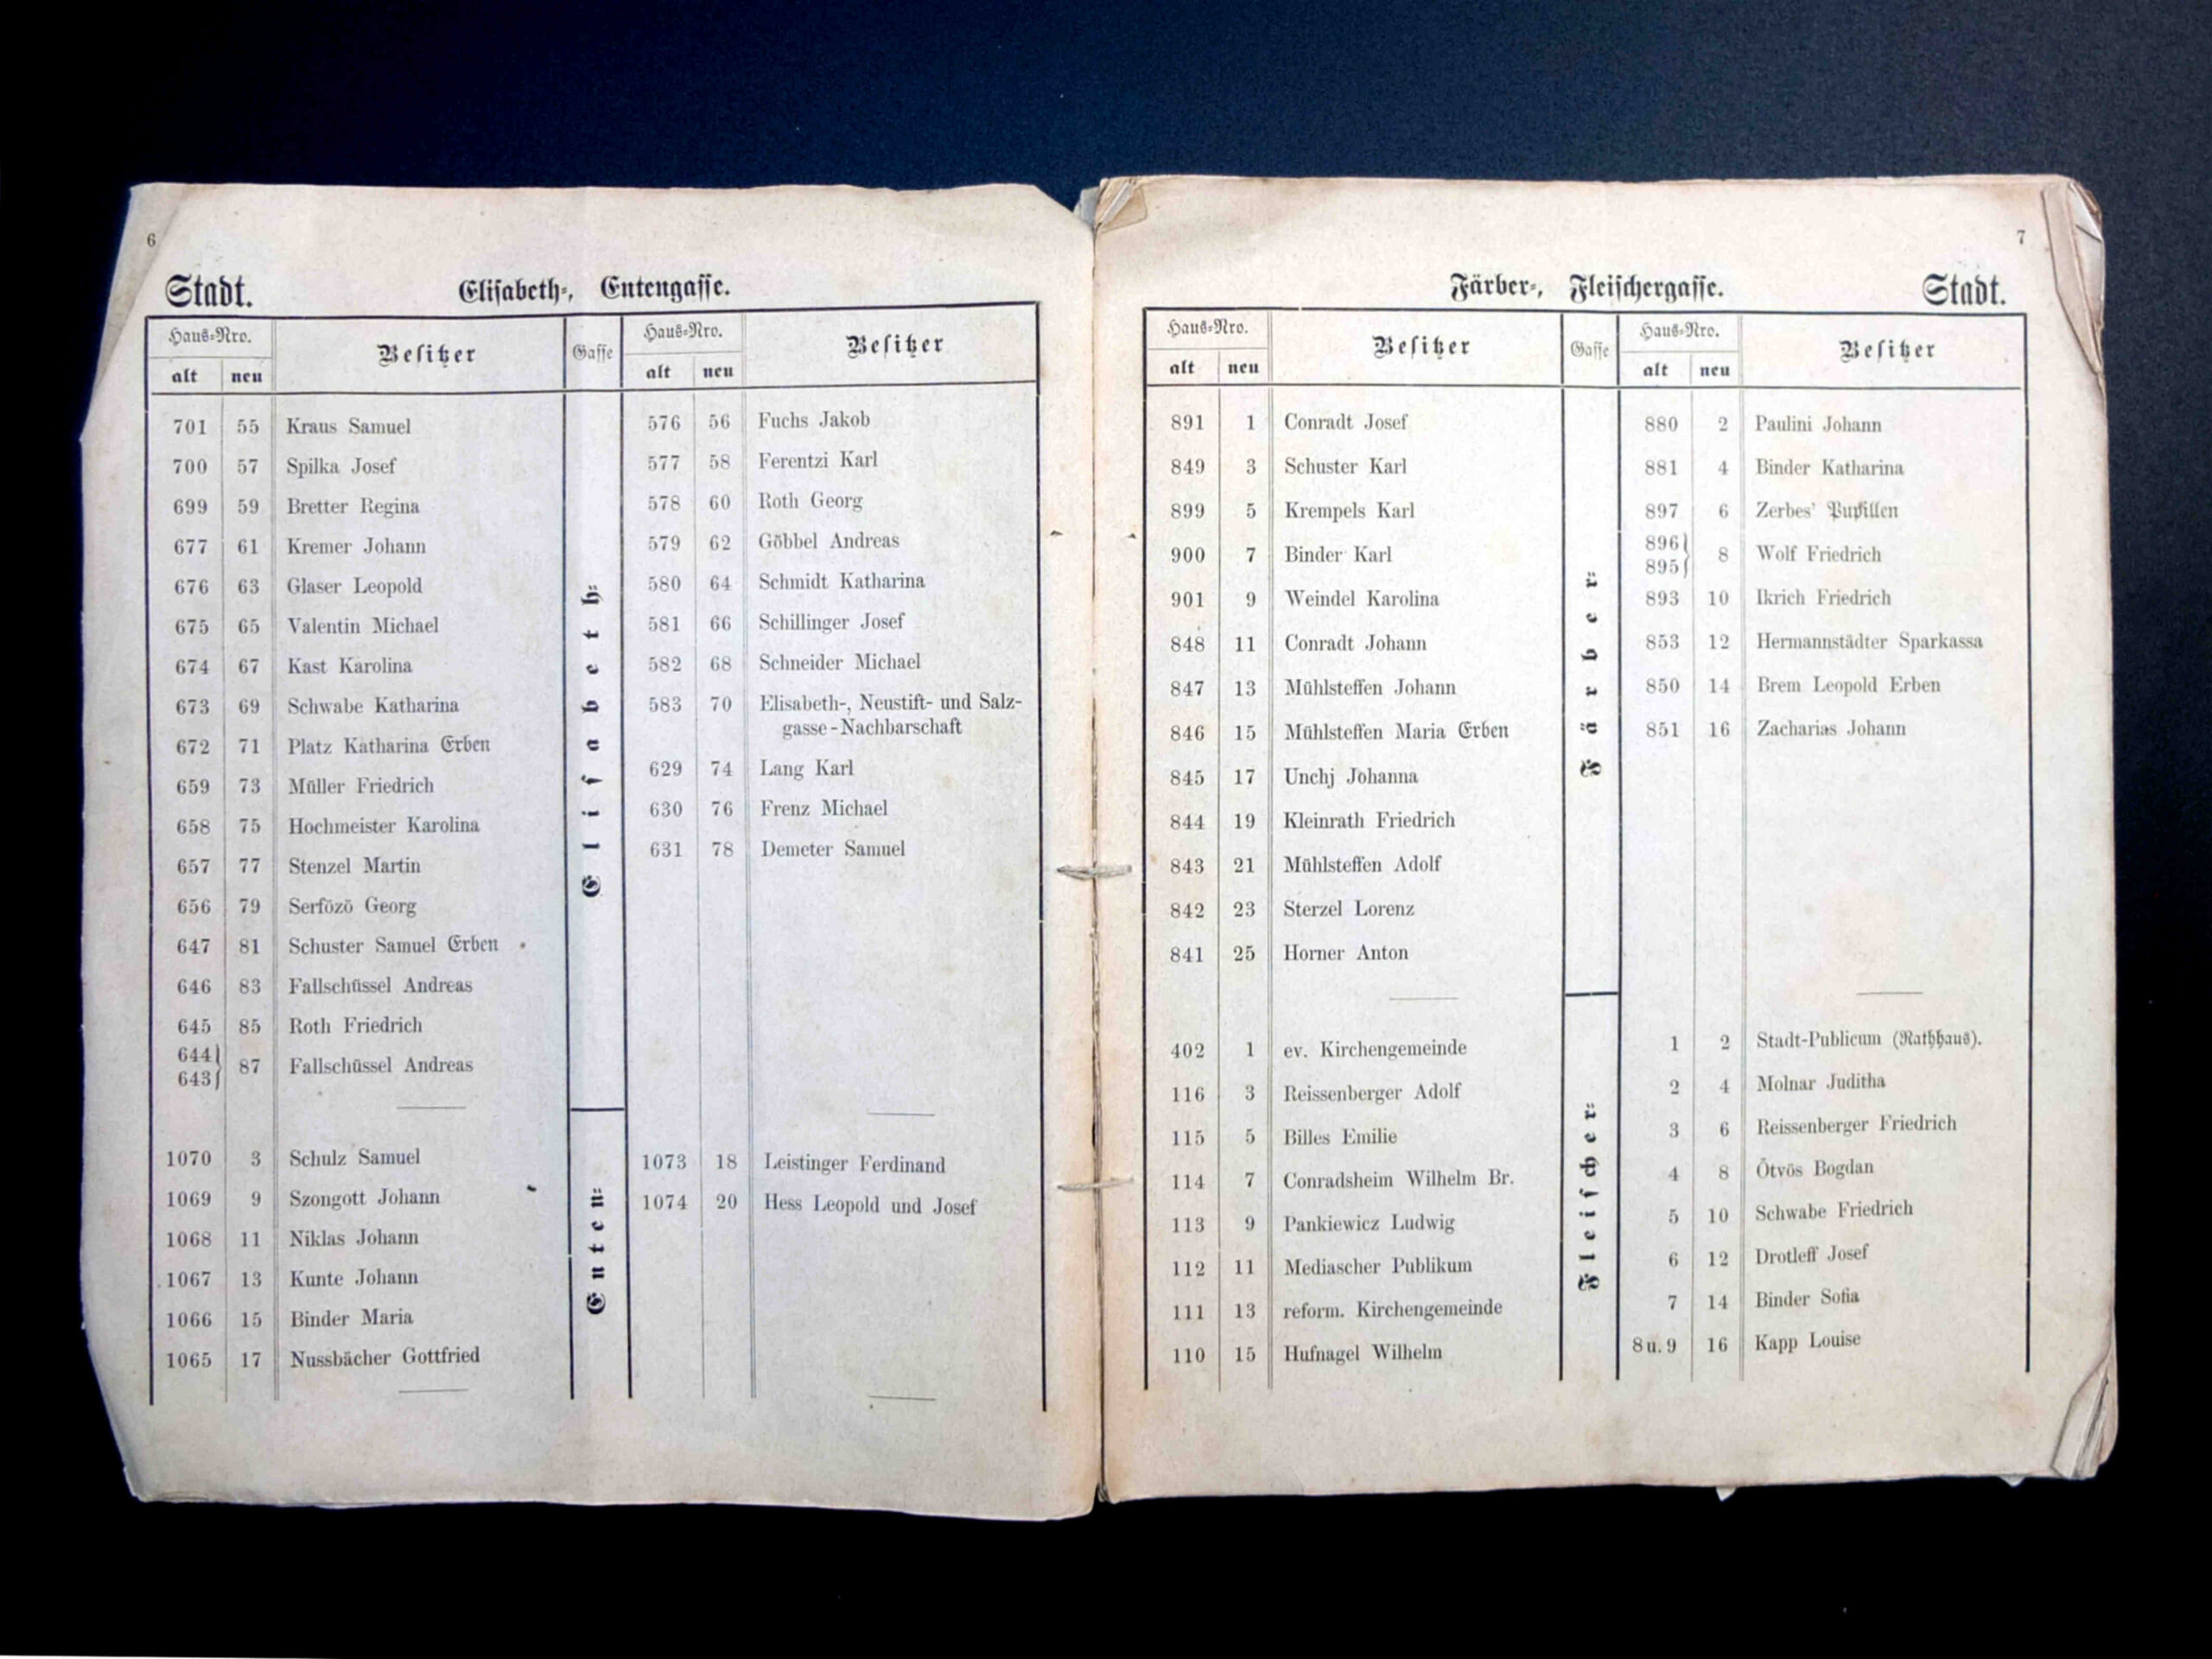 6
Stadt. Elisabeth-, Entengasse.
Haus-Nro. Besitzer Gasse Haus-Nro. Besitzer
alt neu alt neu
Elisabeth-
701 55 Kraus Samuel
700 57 Spilka Josef
699 59 Bretter Regina
677 61 Kremer Johann
676 63 Glaser Leopold
675 65 Valentin Michael
674 67 Kast Karolina
673 69 Schwabe Katharina
672 71 Platz Katharina Erben
659 73 Müller Friedrich
658 75 Hochmeister Karolina
657 77 Stenzel Martin
656 79 Serfözö Georg
647 81 Schuster Samuel Erben
646 83 Fallschüssel Andreas
645 85 Roth Friedrich
644} 87 Fallschüssel Andreas
643}
576 56 Fuchs Jakob
577 58 Ferentzi Karl
578 60 Roth Georg
579 62 Göbbel Andreas
580 64 Schmidt Katharina
581 66 Schillinger Josef
582 68 Schneider Michael
583 70 Elisabeth-, Neustift- und Salz-
gasse-Nachbarschaft
629 74 Lang Karl
630 76 Frenz Michael
631 78 Demeter Samuel
Enten-
1070 3 Schulz Samuel
1069 9 Szongott Johann
1068 11 Niklas Johann
1067 13 Kunte Johann
1066 15 Binder Maria
1065 17 Nussbächer Gottfried
1073 18 Leistinger Ferdinand
1074 20 Hess Leopold und Josef
7
Färber-, Fleischergasse. Stadt.
Haus-Nro. Besitzer Gasse Haus-Nro. Besitzer
alt neu alt neu
Färber-
891 1 Conradt Josef
849 3 Schuster Karl
899 5 Krempels Karl
900 7 Binder Karl
901 9 Weindel Karolina
848 11 Conradt Johann
847 13 Mühlsteffen Johann
846 15 Mühlsteffen Maria Erben
845 17 Unchj Johanna
844 19 Kleinrath Friedrich
843 21 Mühlsteffen Adolf
842 23 Sterzel Lorenz
841 25 Horner Anton
880 2 Paulini Johann
881 4 Binder Katharina
897 6 Zerbes' Pupillen
896} 8 Wolf Friedrich
895}
893 10 Ikrich Friedrich
853 12 Hermannstädter Sparkassa
850 14 Brem Leopold Erben
851 16 Zacharias Johann
Fleischer-
402 1 ev. Kirchengemeinde
116 3 Reissenberger Adolf
115 5 Billes Emilie
114 7 Conradsheim Wilhelm Br.
113 9 Pankiewicz Ludwig
112 11 Mediascher Publikum
111 13 reform. Kirchengemeinde
110 15 Hufnagel Wilhelm
1 2 Stadt-Publicum (Rathhaus).
2 4 Molnar Juditha
3 6 Reissenberger Friedrich
4 8 Ötvös Bogdan
5 10 Schwabe Friedrich
6 12 Drotleff Josef
7 14 Binder Sofia
8 u. 9 16 Kapp Louise